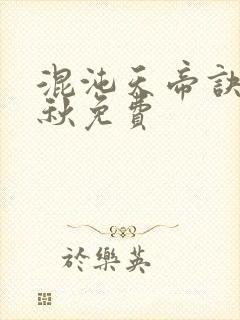 混沌天帝訣
秋免費
於樂英